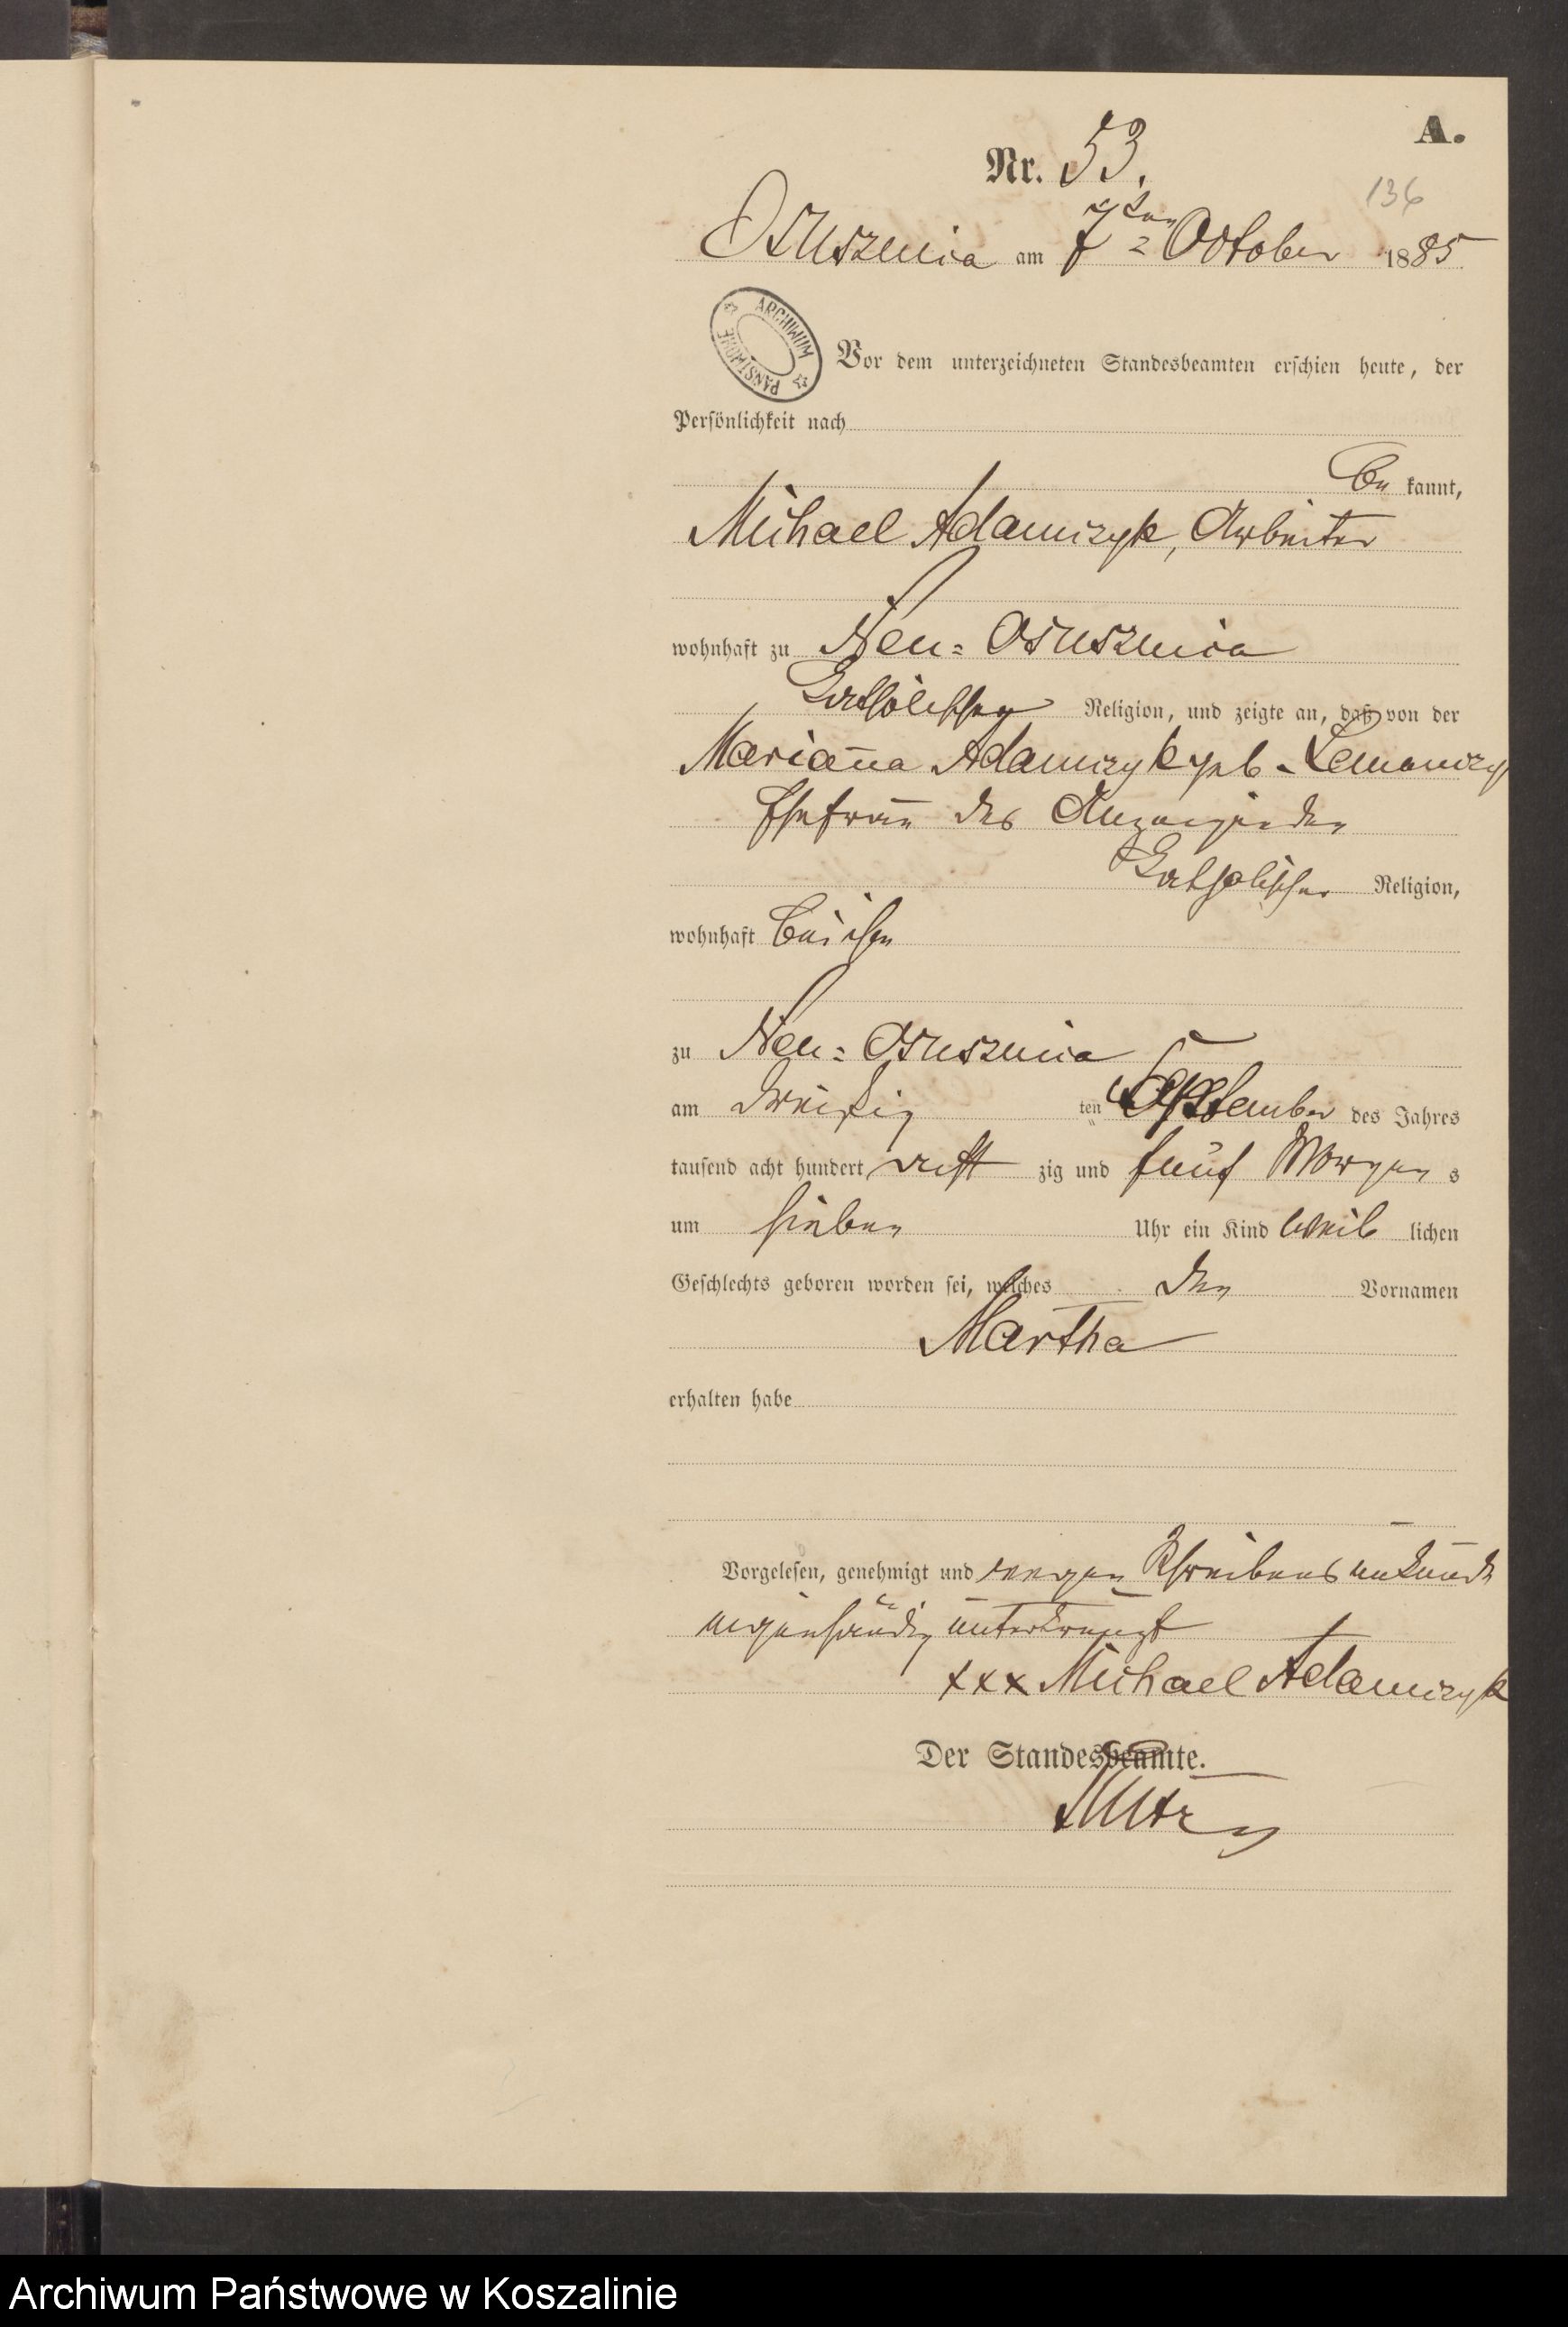 A.
Nr. 53.
136
Osusznica am 7ten October 1885
ARCHIWUM PAŃSTWOWE
Vor dem unterzeichneten Standesbeamten erschien heute, der
Persönlichkeit nach
be kannt,
Michael Adamczyk, Arbeiter
wohnhaft zu Neu-Osusznica
katholischer Religion, und zeigte an, daß von der
Marianna Adamczyk geb.
Ehefrau des Anzeigenden
katholischer Religion,
wohnhaft bei ihm
zu Neu-Osusznica
am dreißig ten September des Jahres
tausend acht hundert acht zig und fünf Morgen s
um sieben Uhr ein Kind weib lichen
Geschlechts geboren worden sei, welches den Vornamen
Martha
erhalten habe
Vorgelesen, genehmigt und wegen Schreibensunkunde
eigenhändig unterkreuzt
xxx Michael Adamczyk
Der Standesbeamte.
Archiwum Państwowe w Koszalinie